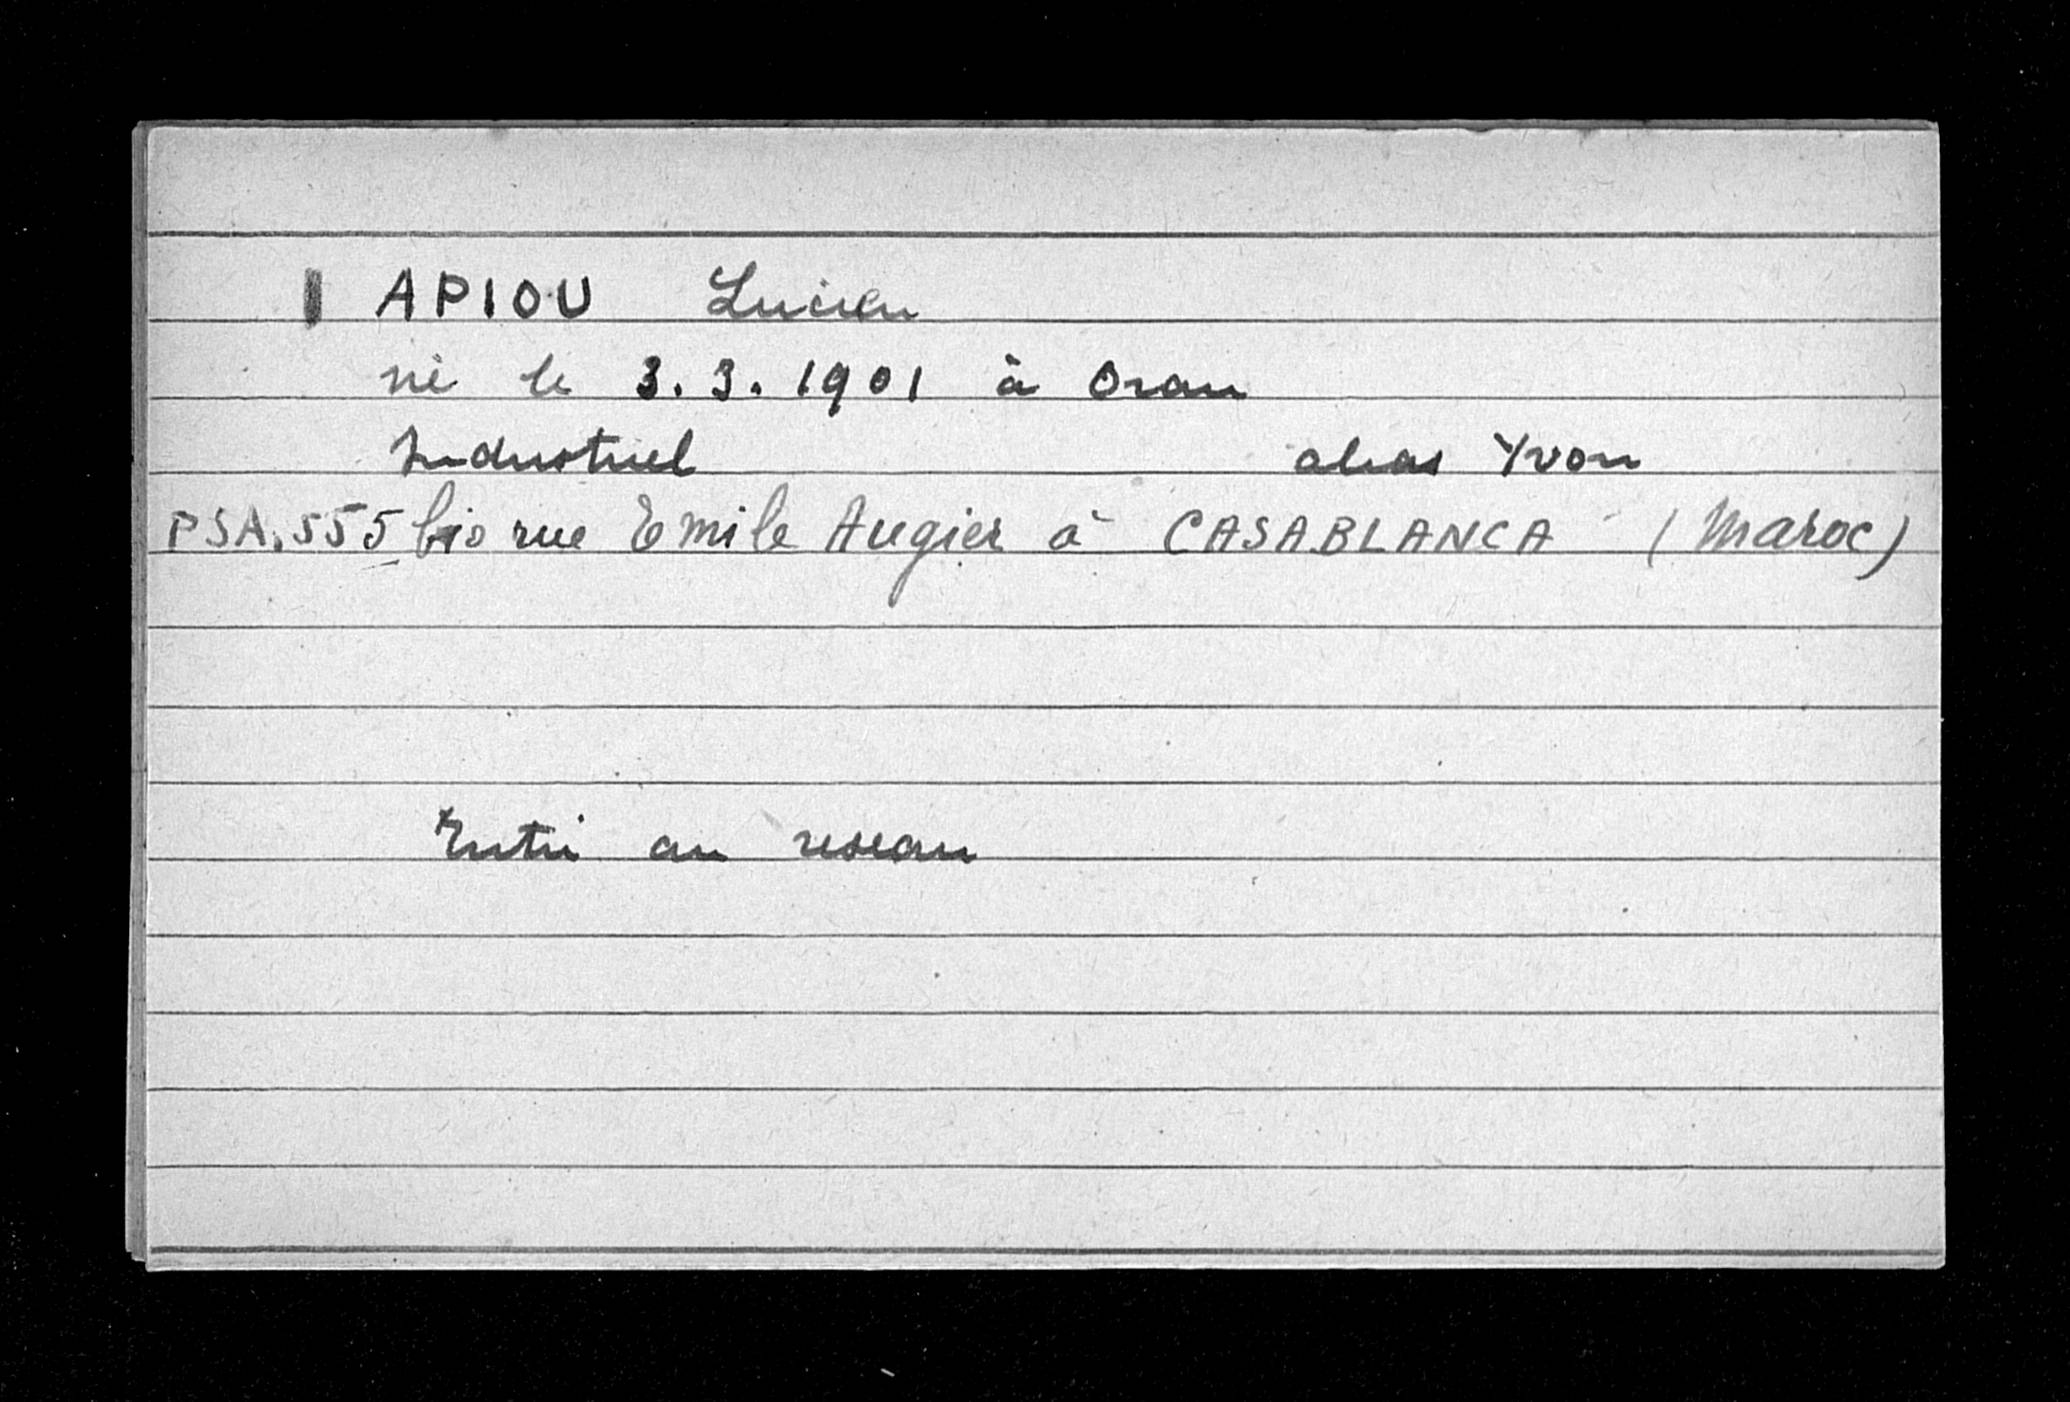 APIOU Lucien
né le 3.3.1901 à Oran
Industriel alias Yvon
PSA.555 bis rue Emile Augier à CASABLANCA (Maroc)
Entré au reseau